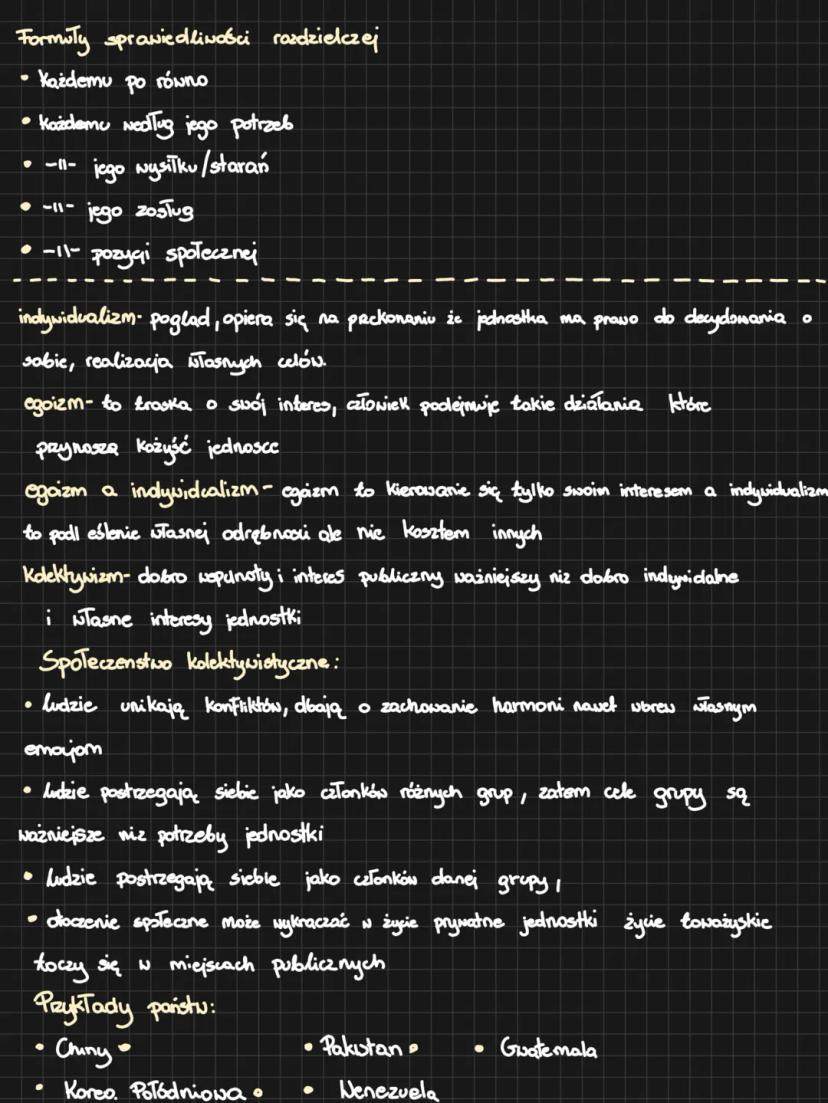 Formuły sprawiedliwości rozdzielczej
• Każdemu po równo
• Każdemu według jego potrzeb
• -||- jego wysiłku/starań
• -||- jego zosług
• -||- pozycji społecznej
indywidualizm- pogląd, opiera się na przekonaniu że jednostka ma prawo do decydowania o
sobie, realizacja własnych celów.
egoizm- to troska o swój interes, człowiek podejmuje takie działania które
przynoszą kożyść jednosce
egoizm a indywidualizm- egoizm to kierowanie się tylko swoim interesem a indywidualizm
to podkreślenie własnej odrębności ale nie kosztem innych
Kolektywizm- dobro wspólnoty i interes publiczny ważniejszy niż dobro indywidalne
i własne interesy jednostki
Społeczeństwo kolektywistyczne:
• ludzie unikają konfliktów, dbają o zachowanie harmoni nawet wbrew własnym
emocjom
• ludzie postrzegają siebie jako członków różnych grup, zatem cele grupy są
ważniejsze niż potrzeby jednostki
• ludzie postrzegają siebie jako członków danej grupy,
• otoczenie społeczne może wykraczać w życie prywatne jednostki życie toważyskie
toczy się w miejscach publicznych
Przykłady państw:
• Chiny • • Pakistan • • Gwatemala
• Korea Połódniowa • • Wenezuela